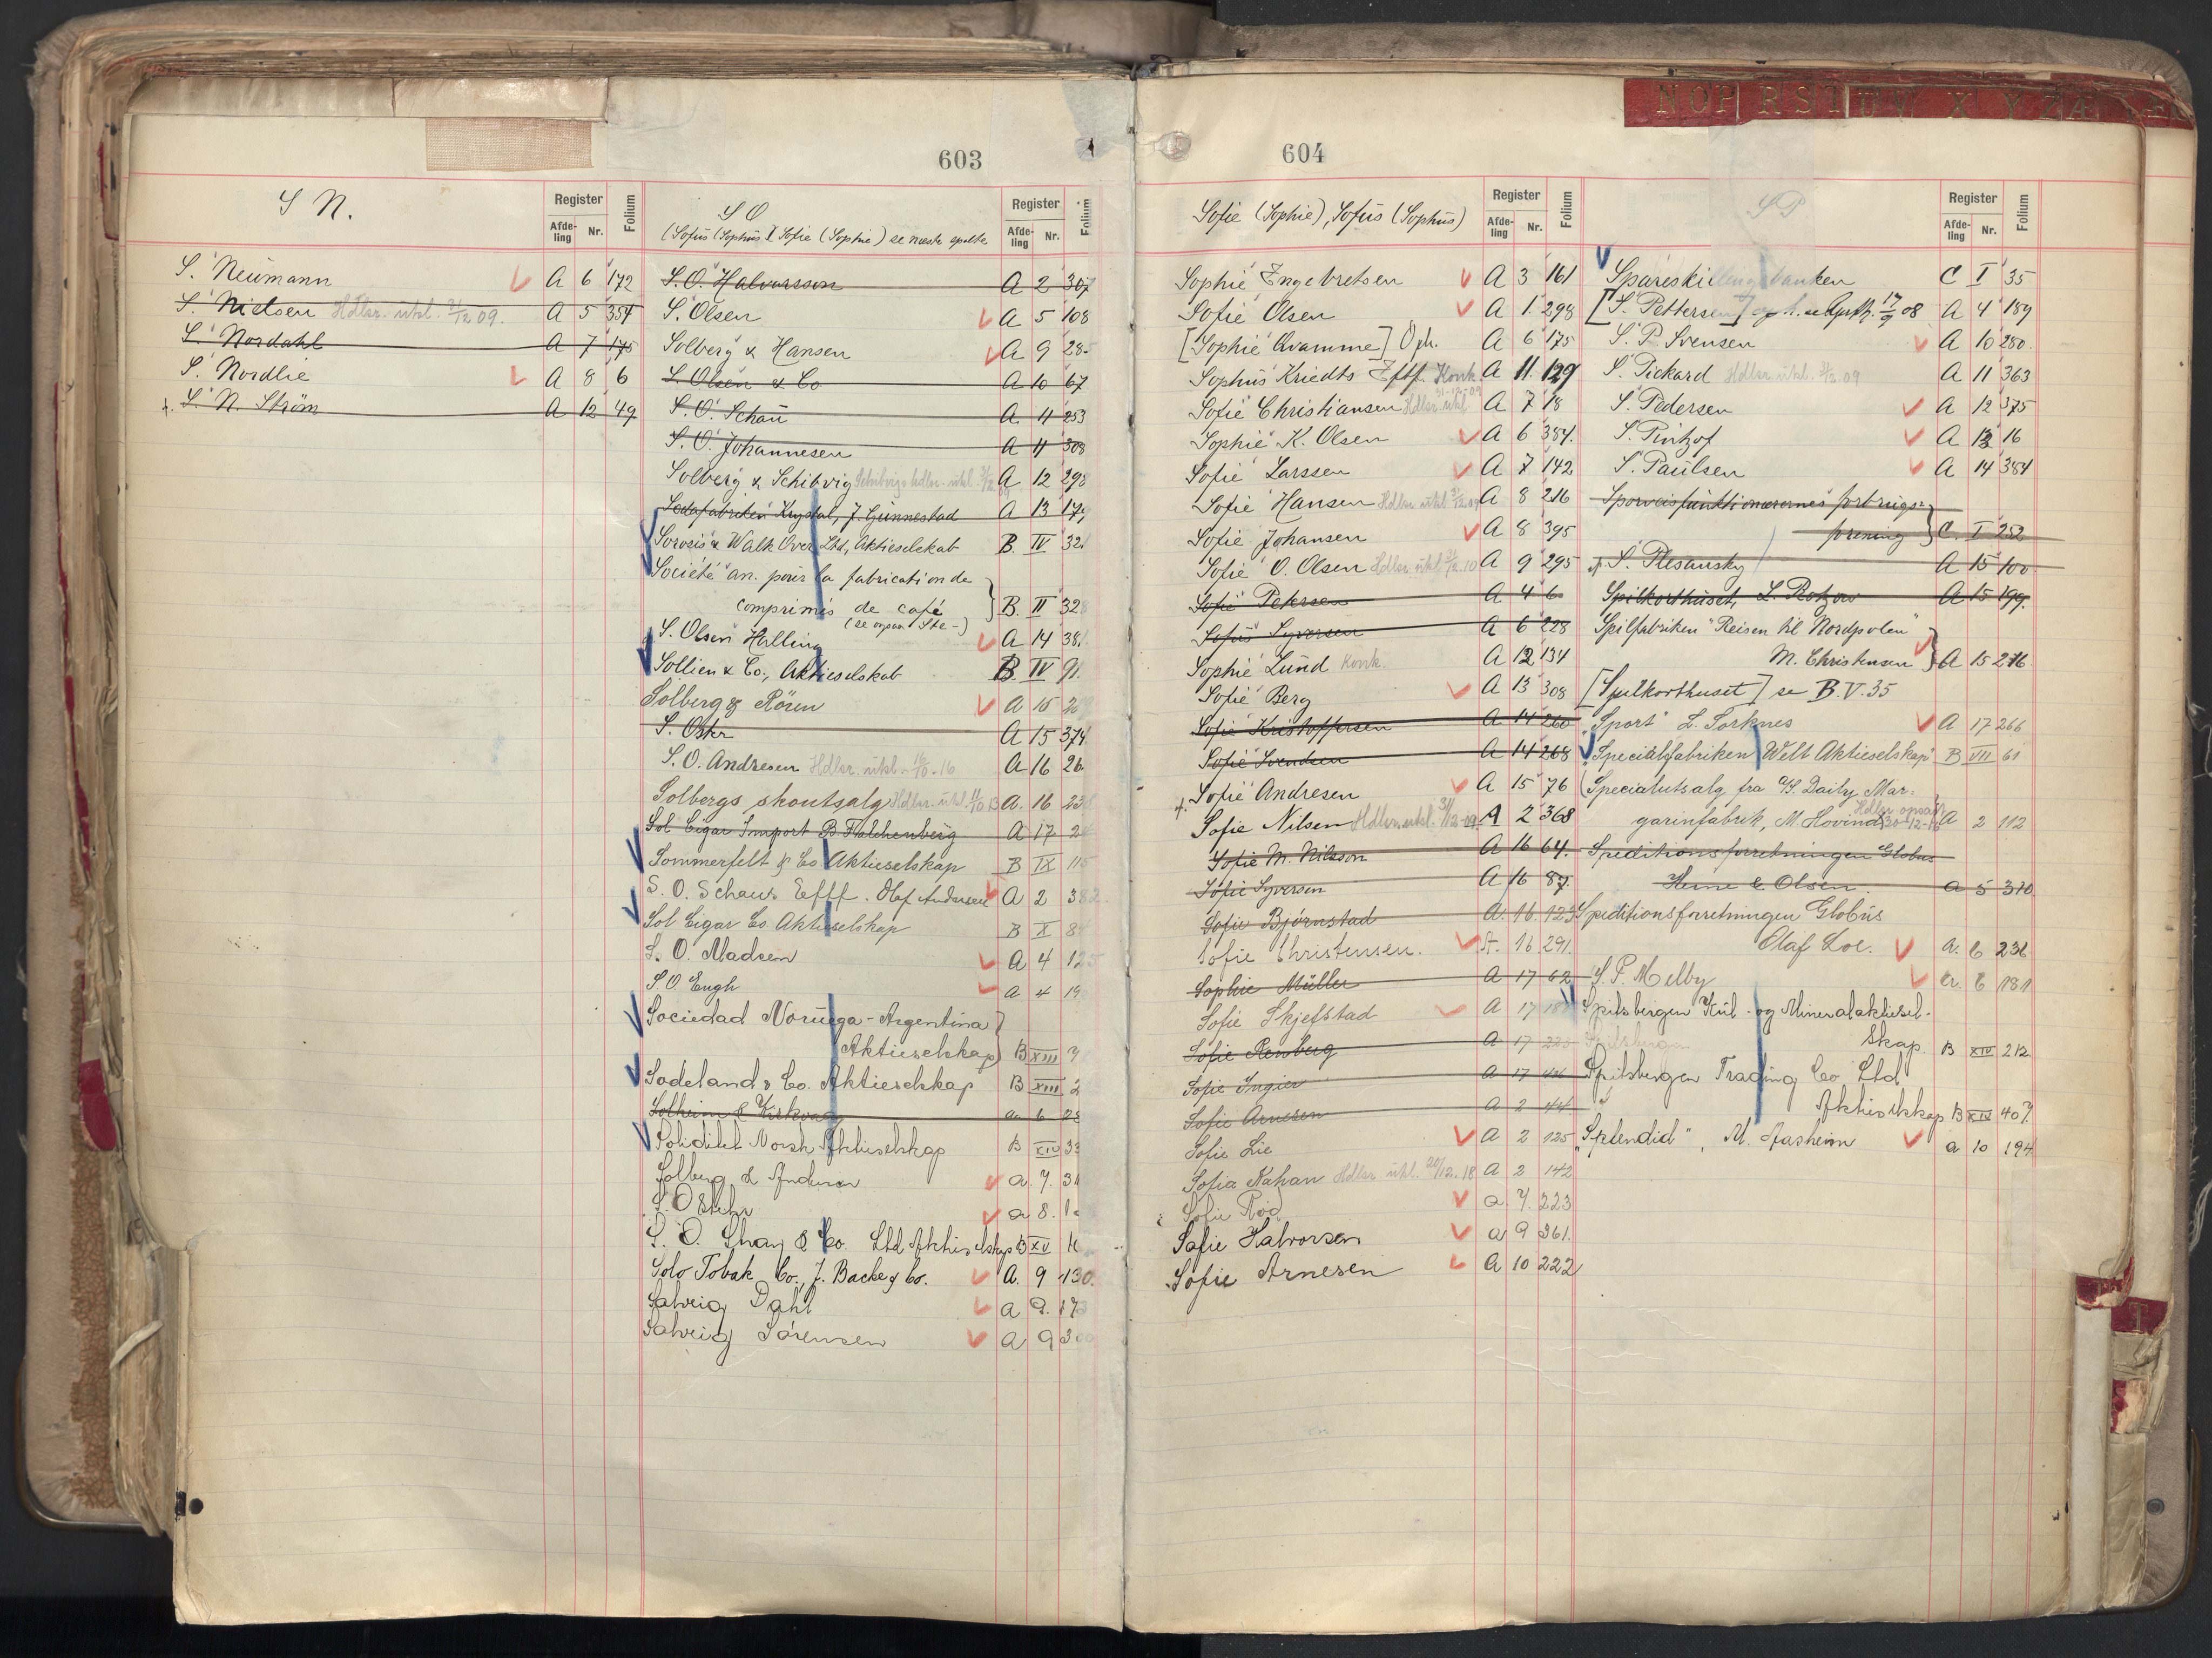 NOP RST UV X Y Z Æ
603
S N.
Register
Afde-
ling
Nr.
Folium
S. Neumann A 6 172
S. Nielsen Hdlsr. utsl. 31/12 09. A 5 354
S. Nordahl A 7 175
S. Nordlie A 8 6
+. S. N. Strøm A 12 49
S O
(Sofus (Sophus) & Sofie (Sophie) se næste spalte
Register
Afde-
ling
Nr.
Folium
S. O. Halvorsson A 2 307
S. Olsen A 5 108
Solberg & Hansen A 9 28
S. Olsen & Co A 10 67
S. O. Schou A 11 253
S. O. Johannesen A 11 308
Solberg & Schibvig A 12 298
Sodafabriken Krystal, J. Gunnestad A 13 17
Sorosis & Walk Over Ltd, Aktieselskab B. IV. 32
Société an. pour la fabrication de
comprimés de café } B. II 32
(se ogsaa Ste-)
S. Olsen Halling A 14 38
Sollien & Co., Aktieselskab B. IV 9
Solberg & Røren A 15 2
S. Oskr A 15 374
S. O. Andresen Hdlsr. utsl. 16/10-16 A 16 26
Solbergs skoutsalg Hdlsr. utsl. A. 16 23
Sol Cigar Import B Falchenberg A 17 2
Sommerfelt & Co Aktieselskap B IX 115
S. O. Schous Eftf. Olaf Andersen A 2 382
Sol Cigar Co. Aktieselskap B X 8
S. O. Madsen A 4 125
S. O. Engh a 4 19
Sociedad Noruega-Argentina }
Aktieselskap B XIII
Sodeland & Co. Aktieselskap B XIII 2
Solheim & Kirkvaag a. 6 25
Soliditet Norsk Aktieselskap B XIV 33
Solberg & Andersen a. 7. 31
S. O. a 8. 1
S. O. Shay & Co. Ltd Aktieselskap B XV 1
Solo Tobak Co., J. Backe & Co. A. 9 130.
Solveig Dahl a 9. 173
Solveig Sørensen a 9 3
604
Sofie (Sophie), Sofus (Sophus)
Register
Afde-
ling
Nr.
Folium
Sophie Engebretsen A 3 161
Sofie Olsen A 1. 298
[Sophie Qvamme] Oph. A 6 175
Sophus Kriedts Eftf. Konk. A 11. 129
Sofie Christiansen Hdlsr. utsl. 31-12-09 A 7 18
Sophie K. Olsen A 6 384.
Sofie Larssen A 7 142
Sofie Hansen Hdlsr. utsl. 31/12.09 A 8 216
Sofie Johansen A 8 395
Sofie O. Olsen Hdlsr. utsl. 31/12.10 A 9 295
Sofie Petersen A 4 6
Sofus Syversen A 6 228
Sophie Lund Konk. A 12 134
Sofie Berg A 13 308
Sofie Kristoffersen A 14 260
Sofie Svendsen A 14 268
Sofie Andresen A 15 76
+. Sofie Nilsen Hdlsr. utsl. 31/12-19 A 2 368
Sofie M. Nilsson A 16 64.
Sofie Syversen A 16 87.
Sofie Bjørnstad A. 16. 123
Sofie Christensen. A. 16. 291.
Sophie Müller A 17 62
Sofie Skjefstad A 17 18
Sofie Renberg A 17
Sofie Ingier A 17
Sofie Arnesen A 2 44
Sofie Lie A 2 125
Sofia Kahan Hdlsr. utsl. 20/12.18 A 2 142
Sofie Rod a 7. 223
Sofie Halvorsen a 9 361.
Sofie Arnesen A 10 222
S P
Register
Afde-
ling
Nr.
Folium
Spareskillingsbanken C I 35
[S. Pettersen] 17/9 08 A 4 189
S. P. Svensen A 10 280.
S. Pickard Hdlsr. utsl. 31/12.09 A 11 363
S. Pedersen A 12 375
S. Pintzof A 13 16
S. Paulsen A 14 384
Sporveisfunktionærernes forbrugs-
forening } C. I 252
+. S. Plesansky A 15 100
Spilkorthuset, L. Rotzow A 15 199.
Spilfabriken "Reisen til Nordpolen"
M. Christensen } A 15 276.
[Spilkorthuset] se B. V. 35
"Sport" L. Sorknes A 17 266
Specialfabriken Welt Aktieselskap B VII 61
(Specialutsalg fra A/S Daity Mar-
garinfabrik, M. Hovind Hdlsr. opsat 30-12-18 A 2 112
Speditionsforretningen Globus
Herne & Olsen. a 5 370
Speditionsforretningen Globus
Olaf Loe. a. 6 236
S. P. Melby a. 6 181
Spitsbergen Kul- og Mineralaktiesel-
skap. B XIV 212
Spitsbergen Trading Co Ltd
Aktieselskap B XIV 407
"Splendid", M. Aasheim a 10 194
T